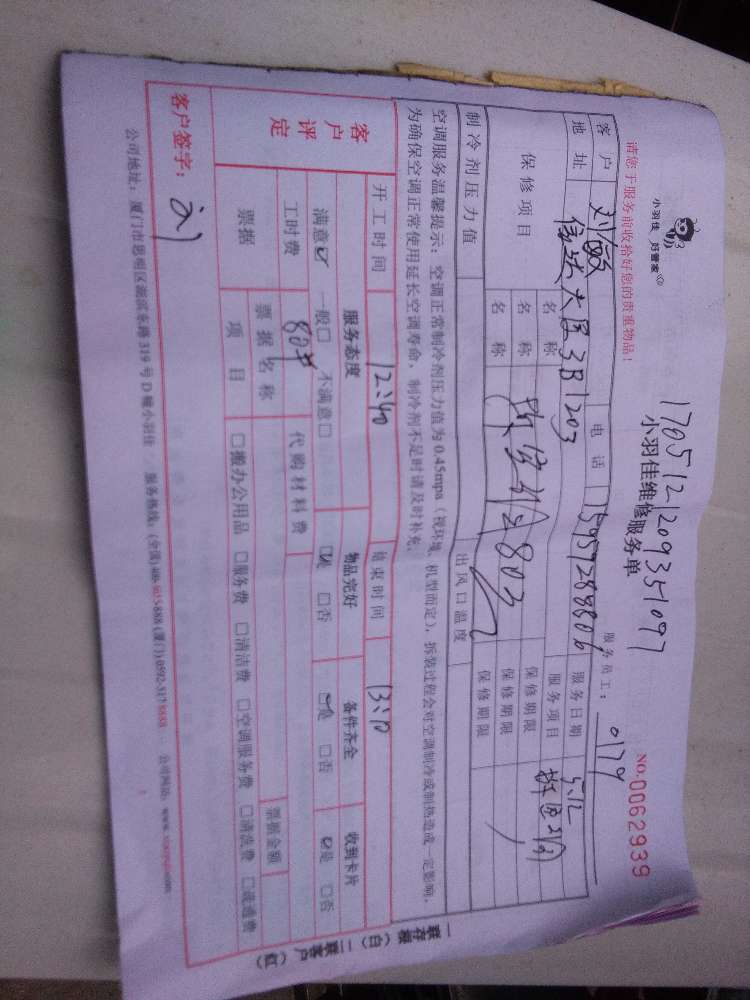 小羽佳 好管家
1705121209351097
小羽佳维修服务单
NO.0062939
请您于服务前收拾好您的贵重物品!
服务员工: 0179
客户 刘敏 电话 服务日期 5.12
地址 信达大厦3B1203 服务项目
保修项目 名称 保修期限
名称 保修期限
名称 保修期限
制冷剂压力值 出风口温度
空调服务温馨提示:空调正常制冷剂压力值为0.45mpa(视环境、机型而定),拆装过程会对空调制冷或制热造成一定影响,
为确保空调正常使用延长空调寿命,制冷剂不足时请及时补充。
开工时间 12:40 结束时间 13:10
客户评定 服务态度 物品完好 备件齐全 收到卡片
满意☑ 一般□ 不满意□ ☑是 □否 ☑是 □否 ☑是 □否
工时费 80# 代购材料费
票据 票据名称 票据金额
项目 □搬办公用品 □服务费 □清洁费 □空调服务费 □清洗费 □疏通费
客户签字: 刘
公司地址:厦门市思明区湖滨东路319号D幢小羽佳 服务热线:(全国) (厦门) 公司网站:
一联存根(白) 二联客户(红)